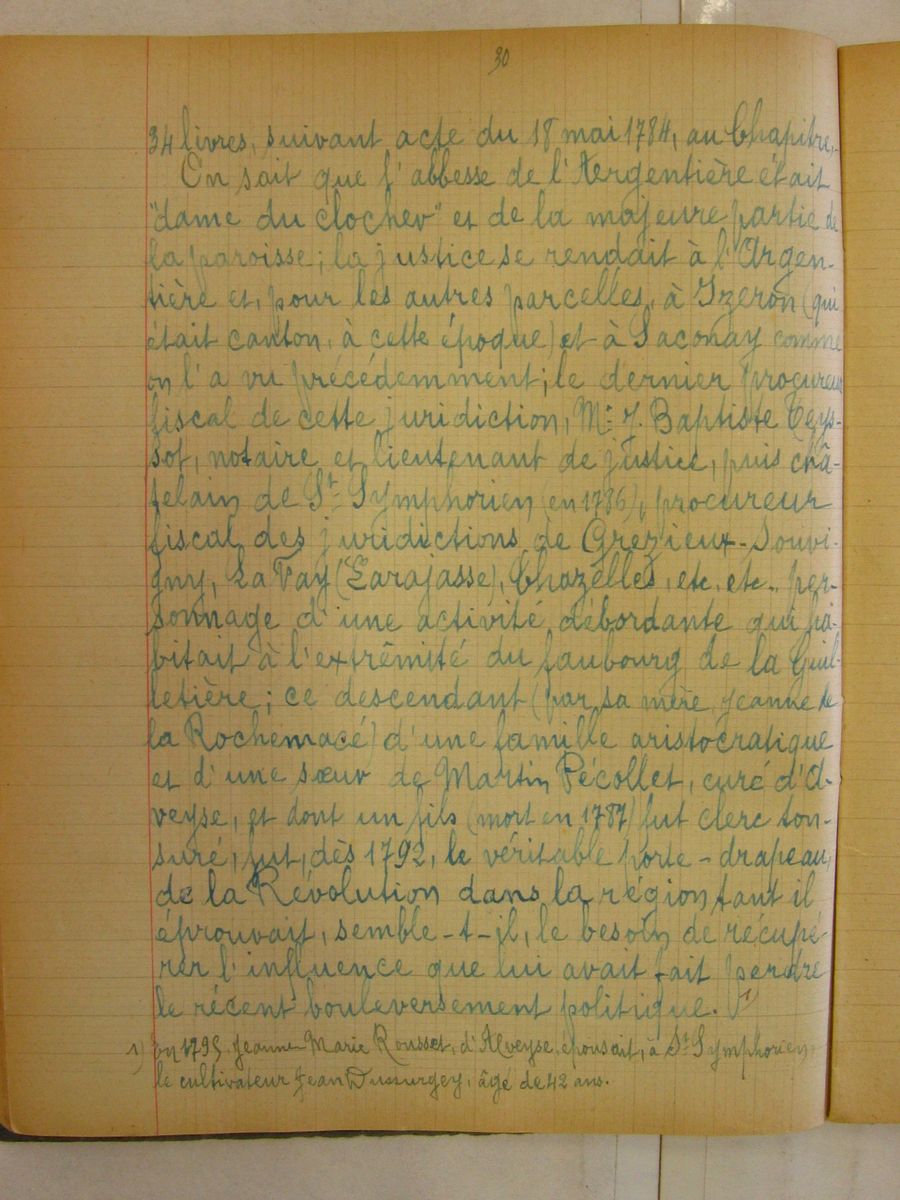 30
34 livres, suivant acte du 18 mai 1784, au Chapitre.-
On sait que l'abbesse de l'Argentière était
"dame du clocher" et de la majeure partie de
la paroisse; la justice se rendait à l'Argen-
tière et, pour les autres parcelles, à Izeron (qui
était canton, à cette époque) et à Saconay comme
on l'a vu précédemment; le dernier procureur
fiscal de cette juridiction, Me J. Baptiste Teys-
sot, notaire et lieutenant de justice, puis châ-
telain de St Symphorien (en 1786), procureur
fiscal des juridictions de Grezieux-Souvi-
gny, La Fay (Larajasse), Chazelles, etc. etc., per-
sonnage d'une activité débordante qui ha-
bitait à l'extrêmité du faubourg de la Guil-
letière; ce descendant (par sa mère, Jeanne de
la Rochemacé) d'une famille aristocratique
et d'une sœur de Martin Pécollet, curé d'A-
veyse, et dont un fils (mort en 1787) fut clerc ton-
suré, fut, dès 1792, le véritable porte-drapeau,
de la Révolution dans la région tant il
éprouvait, semble-t-il, le besoin de récupé-
rer l'influence que lui avait fait perdre
le récent bouleversement politique. 1)
1) En 1795 Jeanne Marie Rousset, d'Aveyse, épousait, à St Symphorien,
le cultivateur Jean Dussurgey, âgé de 42 ans.